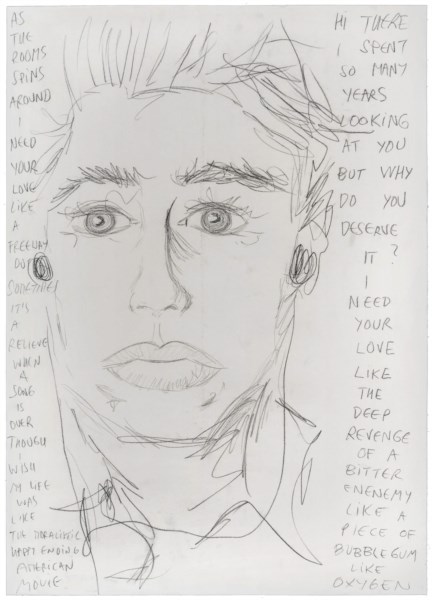 AS
THE
ROOMS
SPINS
AROUND
I
NEED
YOUR
LOVE
LIKE
A
FREEWAY
DO
SOMETIMES
IT'S
A
RELIEVE
WHEN
A
SONG
IS
OVER
THOUGH
I
WISH
MY LIFE
WAS
LIKE
THE
HAPPY ENDING
AMERICAN
MOVIE
HI THERE
I SPENT
SO MANY
YEARS
LOOKING
AT YOU
BUT WHY
DO YOU
DESERVE
IT ?
I
NEED
YOUR
LOVE
LIKE
THE
DEEP
REVENGE
OF A
BITTER
ENENEMY
LIKE A
PIECE OF
BUBBLEGUM
LIKE
OXYGEN